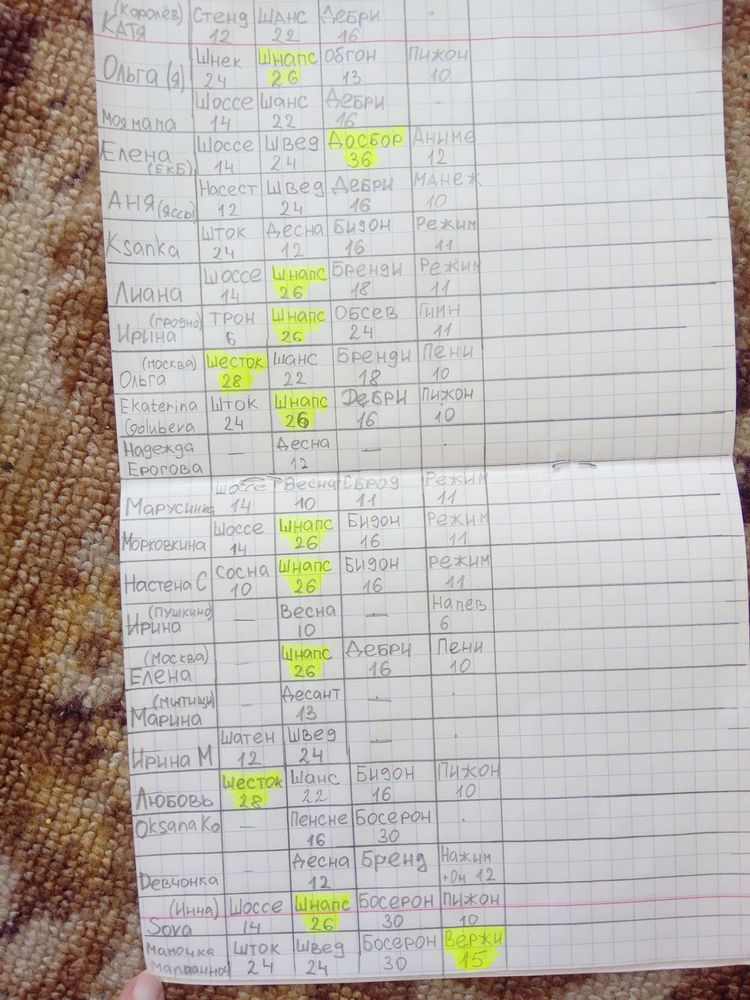 (Королёв) Стенд ШАНС Дебри -
КАТЯ 12 22 16
Ольга (я) Шнек Шнапс Обгон Пижон
24 26 13 10
Шоссе Шанс Дебри -
Моя мапа 14 22 16
Елена Шоссе Швед ДОСБОР Аниме
(ЕКБ) 14 24 36 12
Аня (Яссы) Насест Швед Дебри Манеж
12 24 16 10
Ksanka Шток Десна Бидон Режим
24 12 16 11
Лиана Шоссе Шнапс Бренди Режим
14 26 18 11
(гродно) Трон Шнапс Обсев Гимн
Ирина 6 26 24 11
(москва) Шесток Шанс Бренди Пени
Ольга 28 22 18 10
Ekaterina Шток Шнапс Дебри Пижон
Golubeva 24 26 16 10
Надежда — Десна — -
Ерогова 12
Шоссе Весна Сброд Режим
Марусинка 14 10 11 11
Морковкина Шоссе Шнапс Бидон Режим
14 26 16 11
Настена С Сосна Шнапс Бидон режим
10 26 16 11
(Пушкино) — Весна — Напев
Ирина 10 6
(москва) — Шнапс Дебри Пени
Елена 26 16 10
(мытищи) — Десант — -
Марина 13
Ирина М Шатен Швед —
12 24
Любовь Шесток Шанс Бидон Пижон
28 22 16 10
Oksana Ko — Пенсне Босерон -
16 30
Девчонка - Десна Бренд Нажим
12 +Он 12
(Инна) Шоссе Шнапс Босерон Пижон
Sova 14 26 30 10
Мамочка Шток Швед Босерон Вержи
24 24 30 15